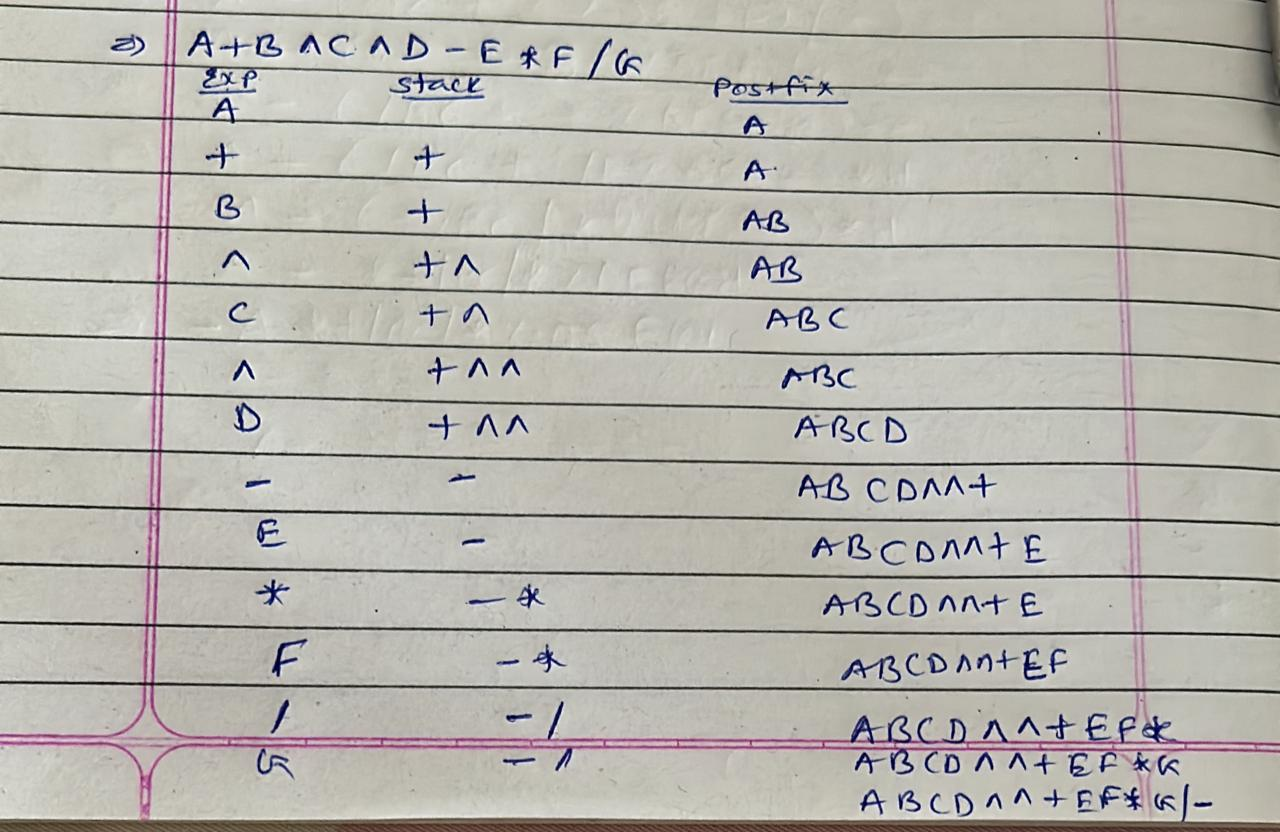 2) A+B^C^D-E*F/G
Exp Stack Postfix
A A
+ + A
B + AB
^ +^ AB
C +^ ABC
^ +^^ ABC
D +^^ ABCD
- - ABCD^^+
E - ABCD^^+E
* -* ABCD^^+E
F -* ABCD^^+EF
/ -/ ABCD^^+EF*
G -^ ABCD^^+EF*G
ABCD^^+EF*G/-